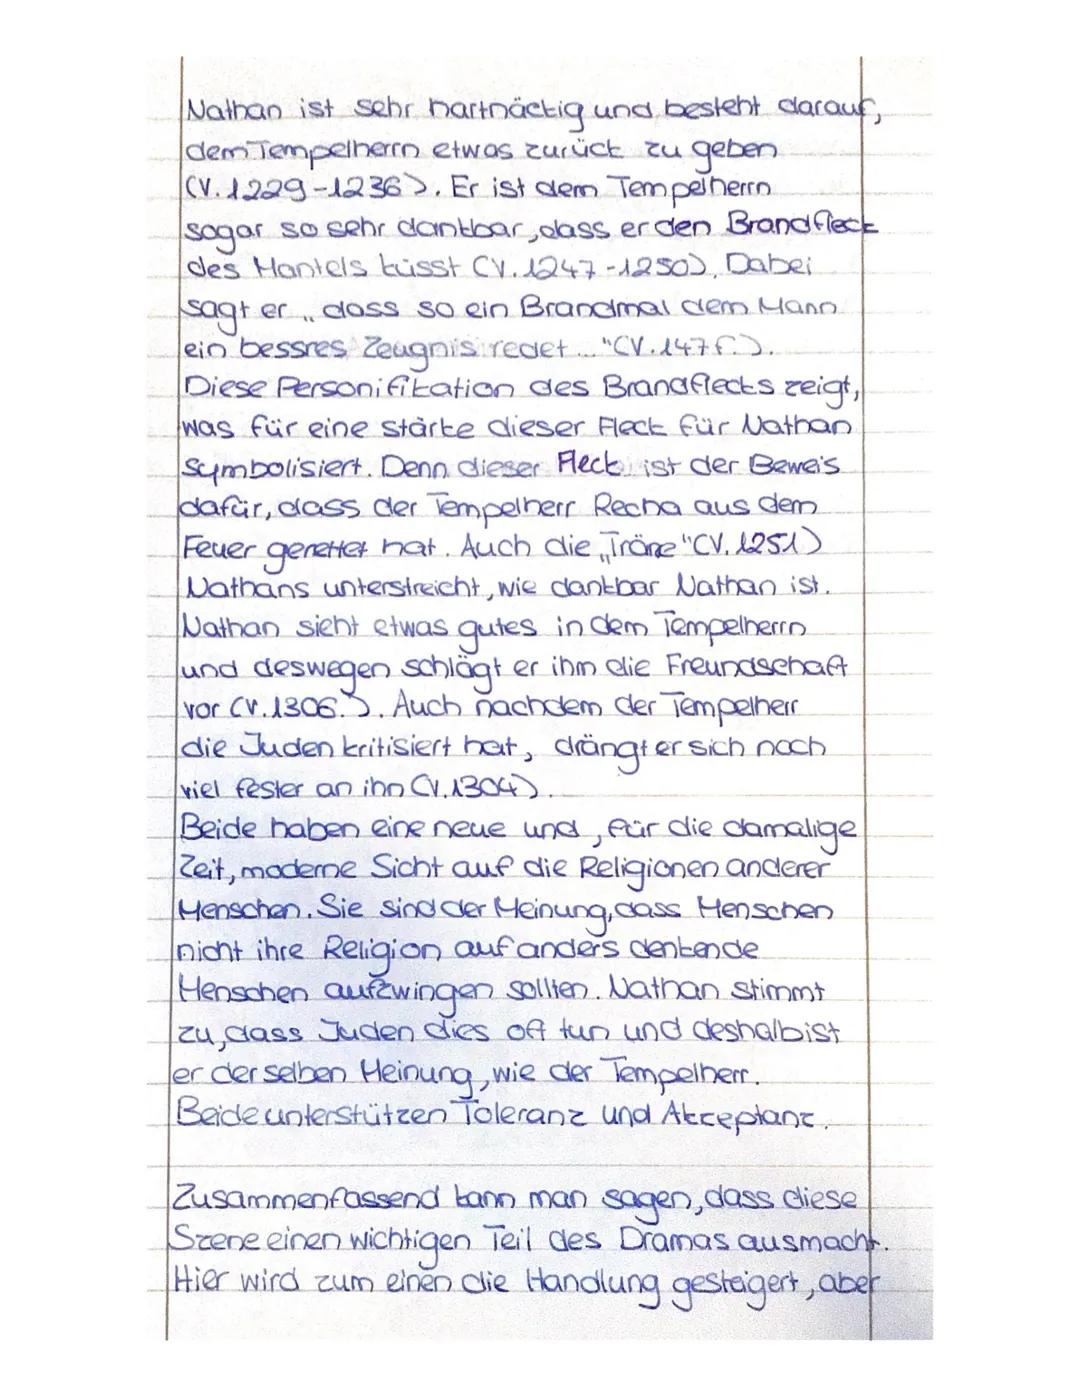 Nathan ist sehr hartnäckig und besteht darauf,
dem Tempelherrn etwas zurück zu geben
(V. 1229-1236). Er ist dem Tempelherrn
sogar so sehr dankbar, dass er den Brandfleck
des Mantels küsst (V. 1247-1250). Dabei
sagt er „ dass so ein Brandmal dem Mann
ein bessres Zeugnis redet..." (V. 147f.).
Diese Personifikation des Brandflecks zeigt,
was für eine stärke dieser Fleck für Nathan
symbolisiert. Denn dieser Fleck ist der Beweis
dafür, dass der Tempelherr Recha aus dem
Feuer gerettet hat. Auch die „Träne" (V. 1251)
Nathans unterstreicht, wie dankbar Nathan ist.
Nathan sieht etwas gutes in dem Tempelherrn
und deswegen schlägt er ihm die Freundschaft
vor (V. 1306.). Auch nachdem der Tempelherr
die Juden kritisiert hat, drängt er sich noch
viel fester an ihn (V. 1304).
Beide haben eine neue und, für die damalige
Zeit, moderne Sicht auf die Religionen anderer
Menschen. Sie sind der Meinung, dass Menschen
nicht ihre Religion auf anders denkende
Menschen aufzwingen sollten. Nathan stimmt
zu, dass Juden dies oft tun und deshalb ist
er der selben Meinung, wie der Tempelherr.
Beide unterstützen Toleranz und Akzeptanz.
Zusammenfassend kann man sagen, dass diese
Szene einen wichtigen Teil des Dramas ausmacht.
Hier wird zum einen die Handlung gesteigert, aber